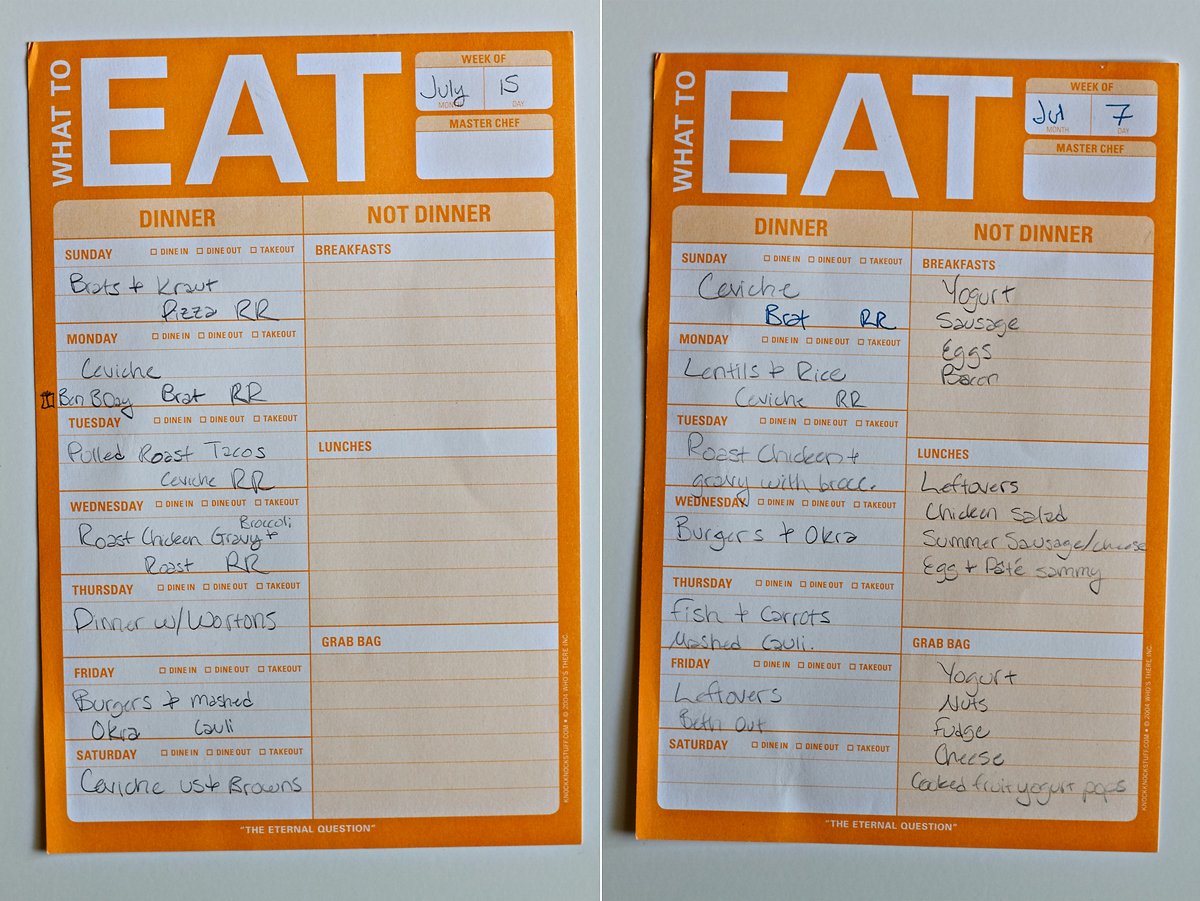 WHAT TO
EAT
WEEK OF
July 15
MONTH DAY
MASTER CHEF
DINNER
NOT DINNER
SUNDAY DINE IN DINE OUT TAKEOUT
Brats + Kraut
Pizza RR
MONDAY DINE IN DINE OUT TAKEOUT
Ceviche
Ben BDay Brat RR
TUESDAY DINE IN DINE OUT TAKEOUT
Pulled Roast Tacos
Ceviche RR
WEDNESDAY DINE IN DINE OUT TAKEOUT
Broccoli
Roast Chicken Gravy +
Roast RR
THURSDAY DINE IN DINE OUT TAKEOUT
Dinner w/Wortons
FRIDAY DINE IN DINE OUT TAKEOUT
Burgers + mashed
Okra Cauli
SATURDAY DINE IN DINE OUT TAKEOUT
Ceviche us + Browns
BREAKFASTS
LUNCHES
GRAB BAG
KNOCKKNOCKSTUFF.COM • © 2004 WHO'S THERE INC.
"THE ETERNAL QUESTION"
WHAT TO
EAT
WEEK OF
Jul 7
MONTH DAY
MASTER CHEF
DINNER
NOT DINNER
SUNDAY DINE IN DINE OUT TAKEOUT
Ceviche
Brat RR
MONDAY DINE IN DINE OUT TAKEOUT
Lentils + Rice
Ceviche RR
TUESDAY DINE IN DINE OUT TAKEOUT
Roast Chicken +
gravy with brocc.
WEDNESDAY DINE IN DINE OUT TAKEOUT
Burgers + Okra
THURSDAY DINE IN DINE OUT TAKEOUT
Fish + Carrots
Mashed Cauli.
FRIDAY DINE IN DINE OUT TAKEOUT
Leftovers
Beth Out
SATURDAY DINE IN DINE OUT TAKEOUT
BREAKFASTS
Yogurt
Sausage
Eggs
Bacon
LUNCHES
Leftovers
Chicken Salad
Summer Sausage/cheese
Egg + Pâté sammy
GRAB BAG
Yogurt
Nuts
Fudge
Cheese
Cooked fruit yogurt pops
KNOCKKNOCKSTUFF.COM • © 2004 WHO'S THERE INC.
"THE ETERNAL QUESTION"